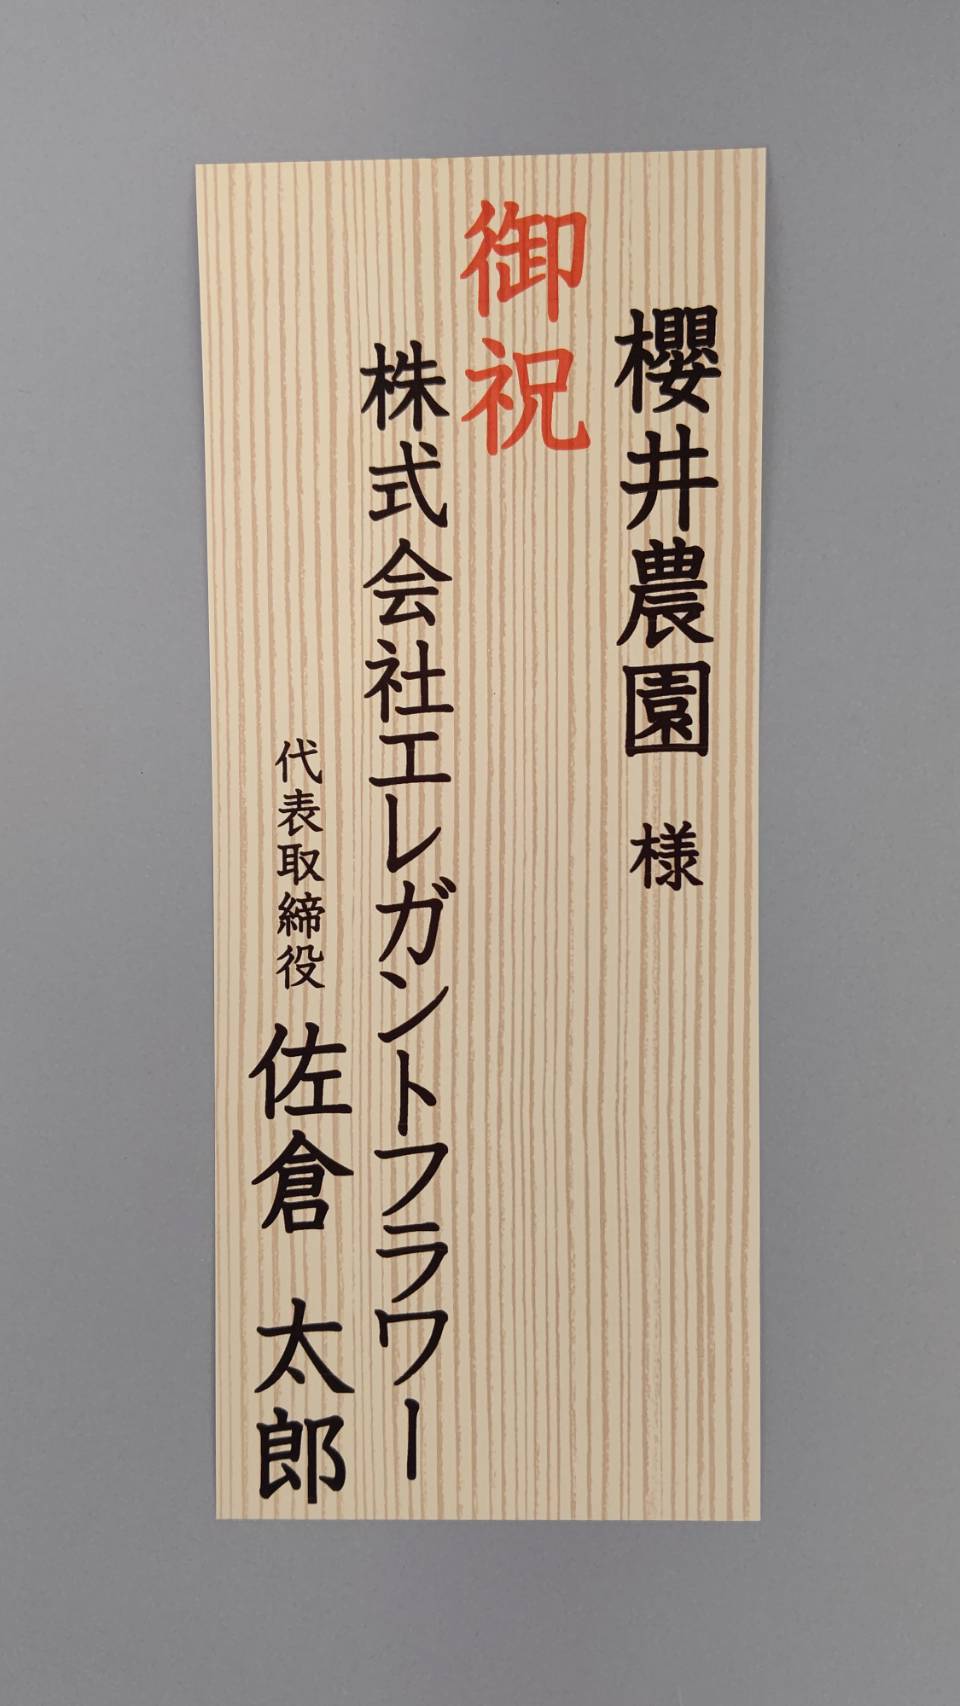 櫻井農園 様
御祝
株式会社エレガントフラワー
代表取締役 佐倉 太郎